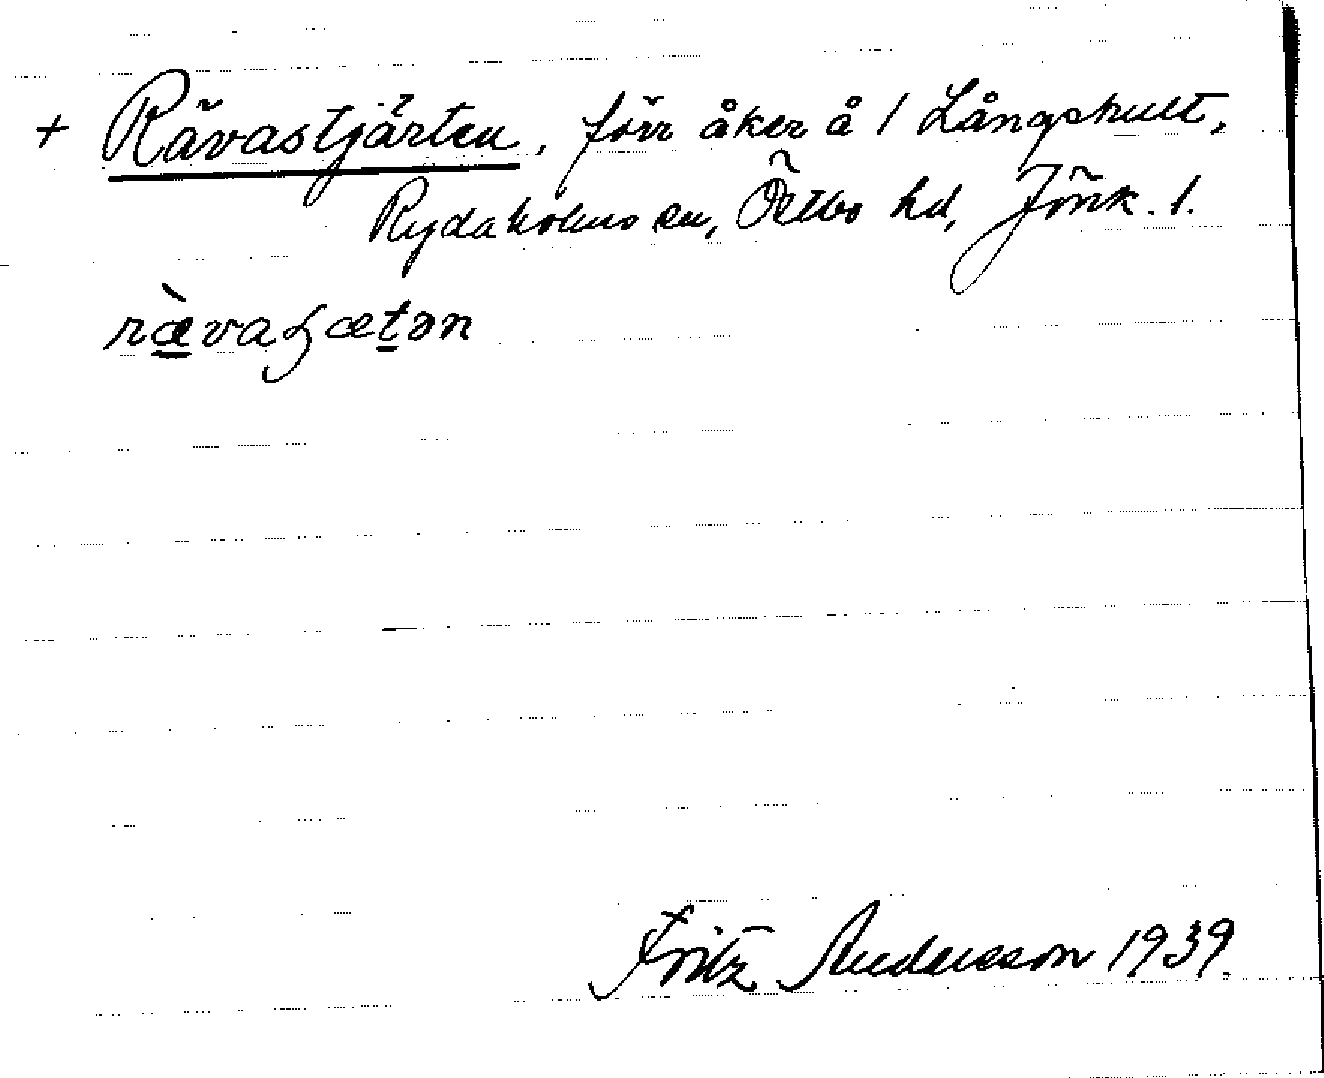 + Rävastjärten, förr åker å 1 Långshult,
Rydaholms sn, Östbo hd, Jönk. l.
ræ̀vaʂætən
Fritz Andersson 1939.